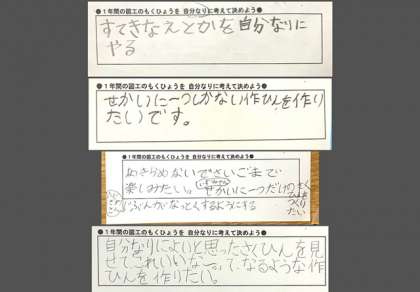 ●1年間の図工のもくひょうを 自分なりに考えて決めよう●
すてきなえとかを自分なりに
やる
●1年間の図工のもくひょうを 自分なりに考えて決めよう●
せかいに一つしかない作ひんを作り
たいです。
●1年間の図工のもくひょうを 自分なりに考えて決めよう●
あきらめないでさいごまで
楽しみたい。せかいに一つだけのさく
ひんをつくりたい
じぶんがなっとくするようにする
●1年間の図工のもくひょうを 自分なりに考えて決めよう●
自分なりによいと思ったさくひんを見
せてこれいいなーって、なるような作
ひんを作りたい。